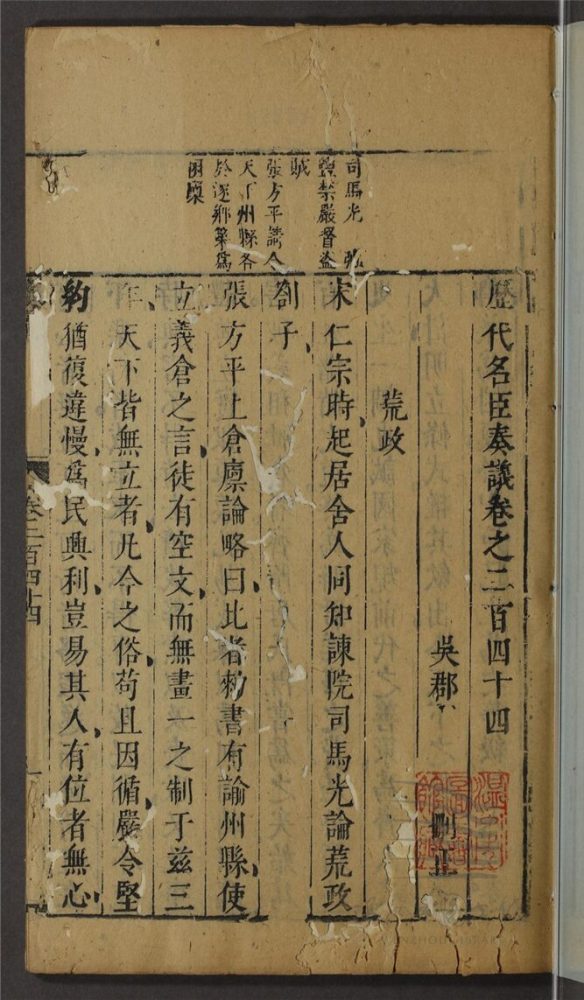 司馬光
監禁嚴督盗
賊
張方平請令
天下州縣各
於逐鄉築為
囷廩
歷代名臣奏議卷之二百四十四
吳郡 刪正
荒政
宋仁宗時起居舍人同知諫院司馬光論荒政
劄子
張方平上倉廩論略曰比者勑書有諭州縣使
立義倉之言徒有空文而無畫一之制于兹三
年天下皆無立者凡今之俗苟且因循嚴令堅
約猶復違慢為民興利豈易其人有位者無心
卷二百四十四